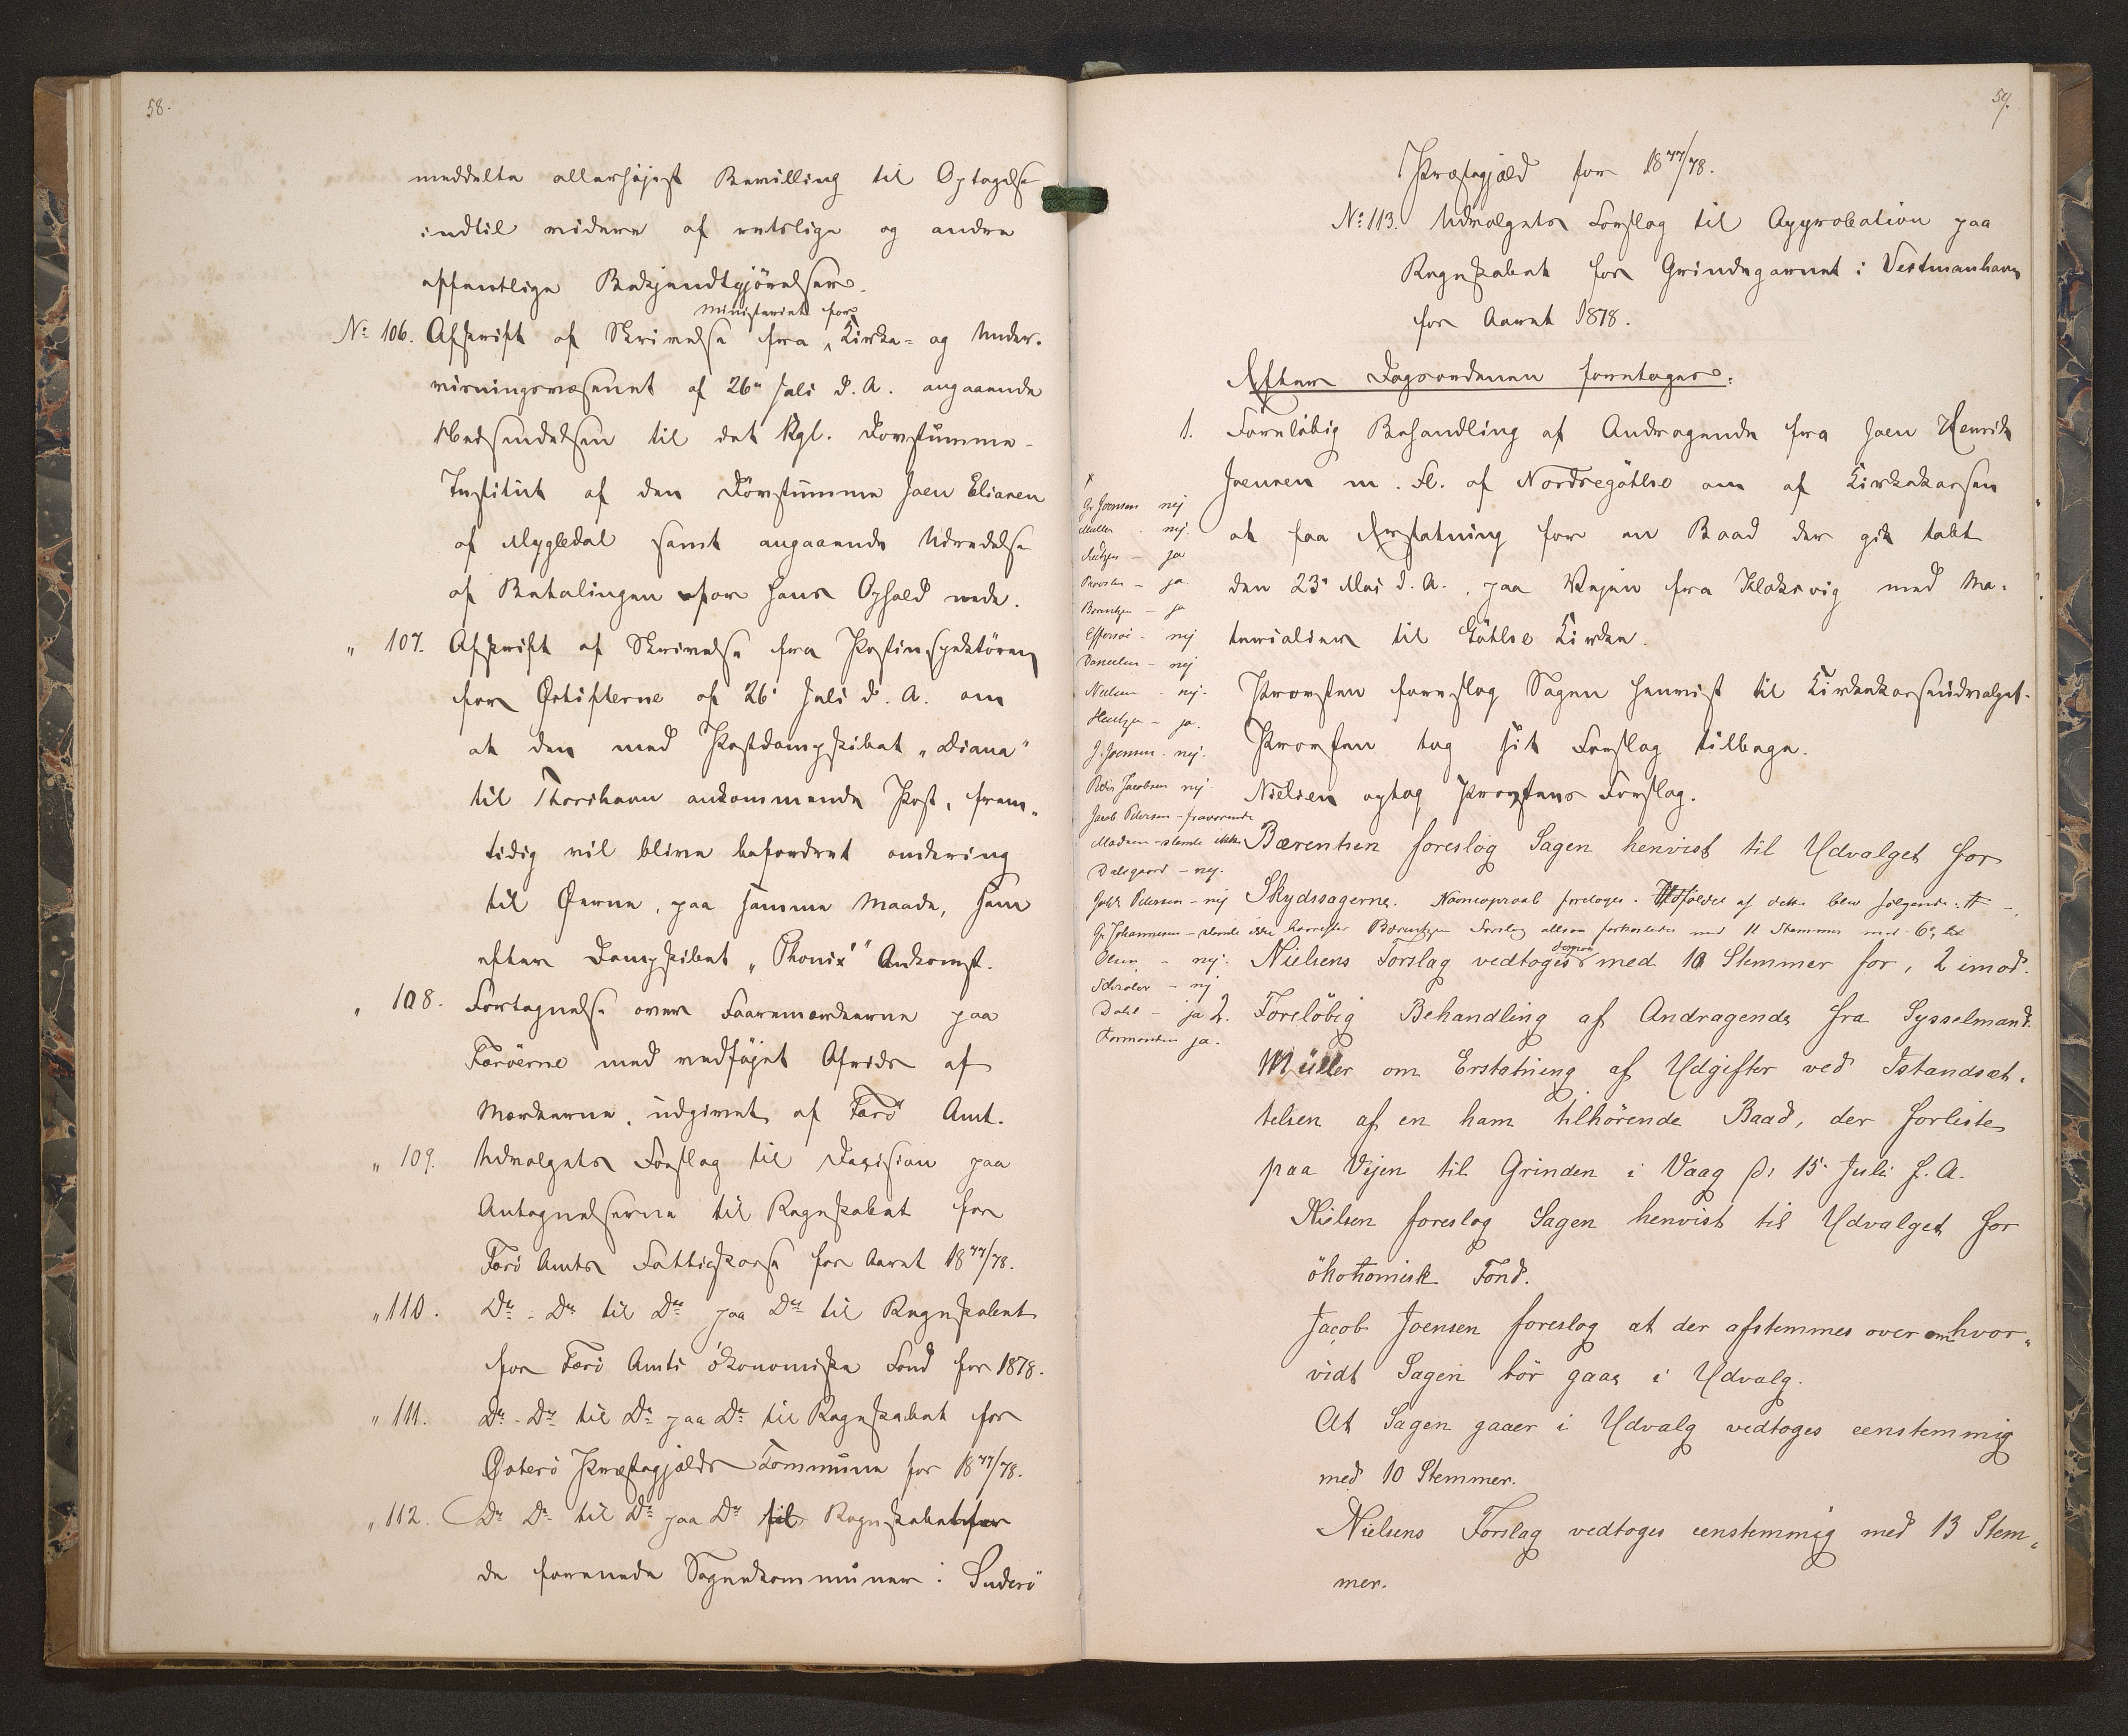 58.
meddelte allerhøjest Bevilling til Optagelse
indtil videre af retslige og andre
offentlige Bekjendtgjörelser.
Ministeriet for
No 106. Afskrift af Skrivelse fra Kirke- og Under-
visningsvæsenet af 26e Juli d. A. angaaende
Nedsendelsen til det Kgl. Dovstumme-
Institut af den Dövstumme Joen Eliasen
af Mygledal samt angaaende Udredelse
af Betalingen for hans Ophold nede.
" 107. Afskrift af Skrivelse fra Postinspektören
for Østifterne af 26' Juli d. A. om
at den med Postdampskibet „Diana"
til Thorshavn ankommende Post, frem-
tidig vil blive befordret omkring
til Øerne, paa samme Maade, som
efter Dampskibet „Phönix" Ankomst.
" 108. Fortegnelse over Faaremærkerne paa
Færöerne med vedföjet Afrids af
Mærkerne, udgivet af Færö Amt.
" 109. Udvalgets Forslag til Decision paa
Antegnelserne til Regnskabet for
Færö Amts Fattigkasse for Aaret 1877/78.
" 110. Do - Do til Do paa Do til Regnskabet
for Færö Amts ökonomiske Fond for 1878.
" 111. Do - Do til Do paa Do til Regnskabet for
Österö Præstegjælds Kommune for 1877/78.
" 112. Do Do til Do paa Do til Regnskabet for
de forenede Sognekommuner i Suderö
59.
Præstegjæld for 1877/78.
No 113. Udvalgets Forslag til Approbation paa
Regnskabet for Grindegarnet i Vestmanhavn
for Aaret 1878.
Efter Dagsordenen foretoges:
1. Foreløbig Behandling af Andragende fra Joen Henrik
Joensen m. Fl. af Nordregöthe om af Kirkekassen
at faa Erstatning for en Baad der gik tabt
den 23' Mai d. A. paa Vejen fra Klaksvig med Ma-
terialier til Göthe Kirke.
Provsten foreslog Sagen henvist til Kirkekasseudvalget.
Provsten tog sit Forslag tilbage.
Nielsen optog Provstens Forslag.
Bærentsen foreslog Sagen henvist til Udvalget for
Skydssagerne. Navneopraab foretoges. Udfaldet af dette blev følgende:
hvorefter Bærentsen Forslag altsaa forkastedes med 11 Stemmer mod 6
Nielsens Forslag vedtoges med 10 Stemmer for, 2 imod.
x
Joensen nej
Müller nej
ja
Provsten - ja
Bærentsen - ja
Effersöe - nej
Danielsen - nej
Nielsen - nej.
Hentze - ja.
J. Joensen - nej.
Peder Jacobsen nej
Jacob Petersen - fraværende
Madsen - stemte ikke
Dalsgaard - nej.
Petersen - nej
Johannesen - stemte ikke
Olsen - nej.
Schröter - nej
Dahl - ja
Formanden ja.
2. Foreløbig Behandling af Andragende fra Sysselmand
Müller om Erstatning af Udgifter ved Istandsæt-
telsen af en ham tilhørende Baad, der forliste
paa Vejen til Grinden i Vaag d. 15' Juli f. A.
Nielsen foreslog Sagen henvist til Udvalget for
ökonomisk Fond.
Jacob Joensen foreslog at der afstemmes over om hvor-
vidt Sagen bör gaae i Udvalg.
At Sagen gaaer i Udvalg vedtoges eenstemmig
med 10 Stemmer.
Nielsens Forslag vedtoges eenstemmig med 13 Stem-
mer.